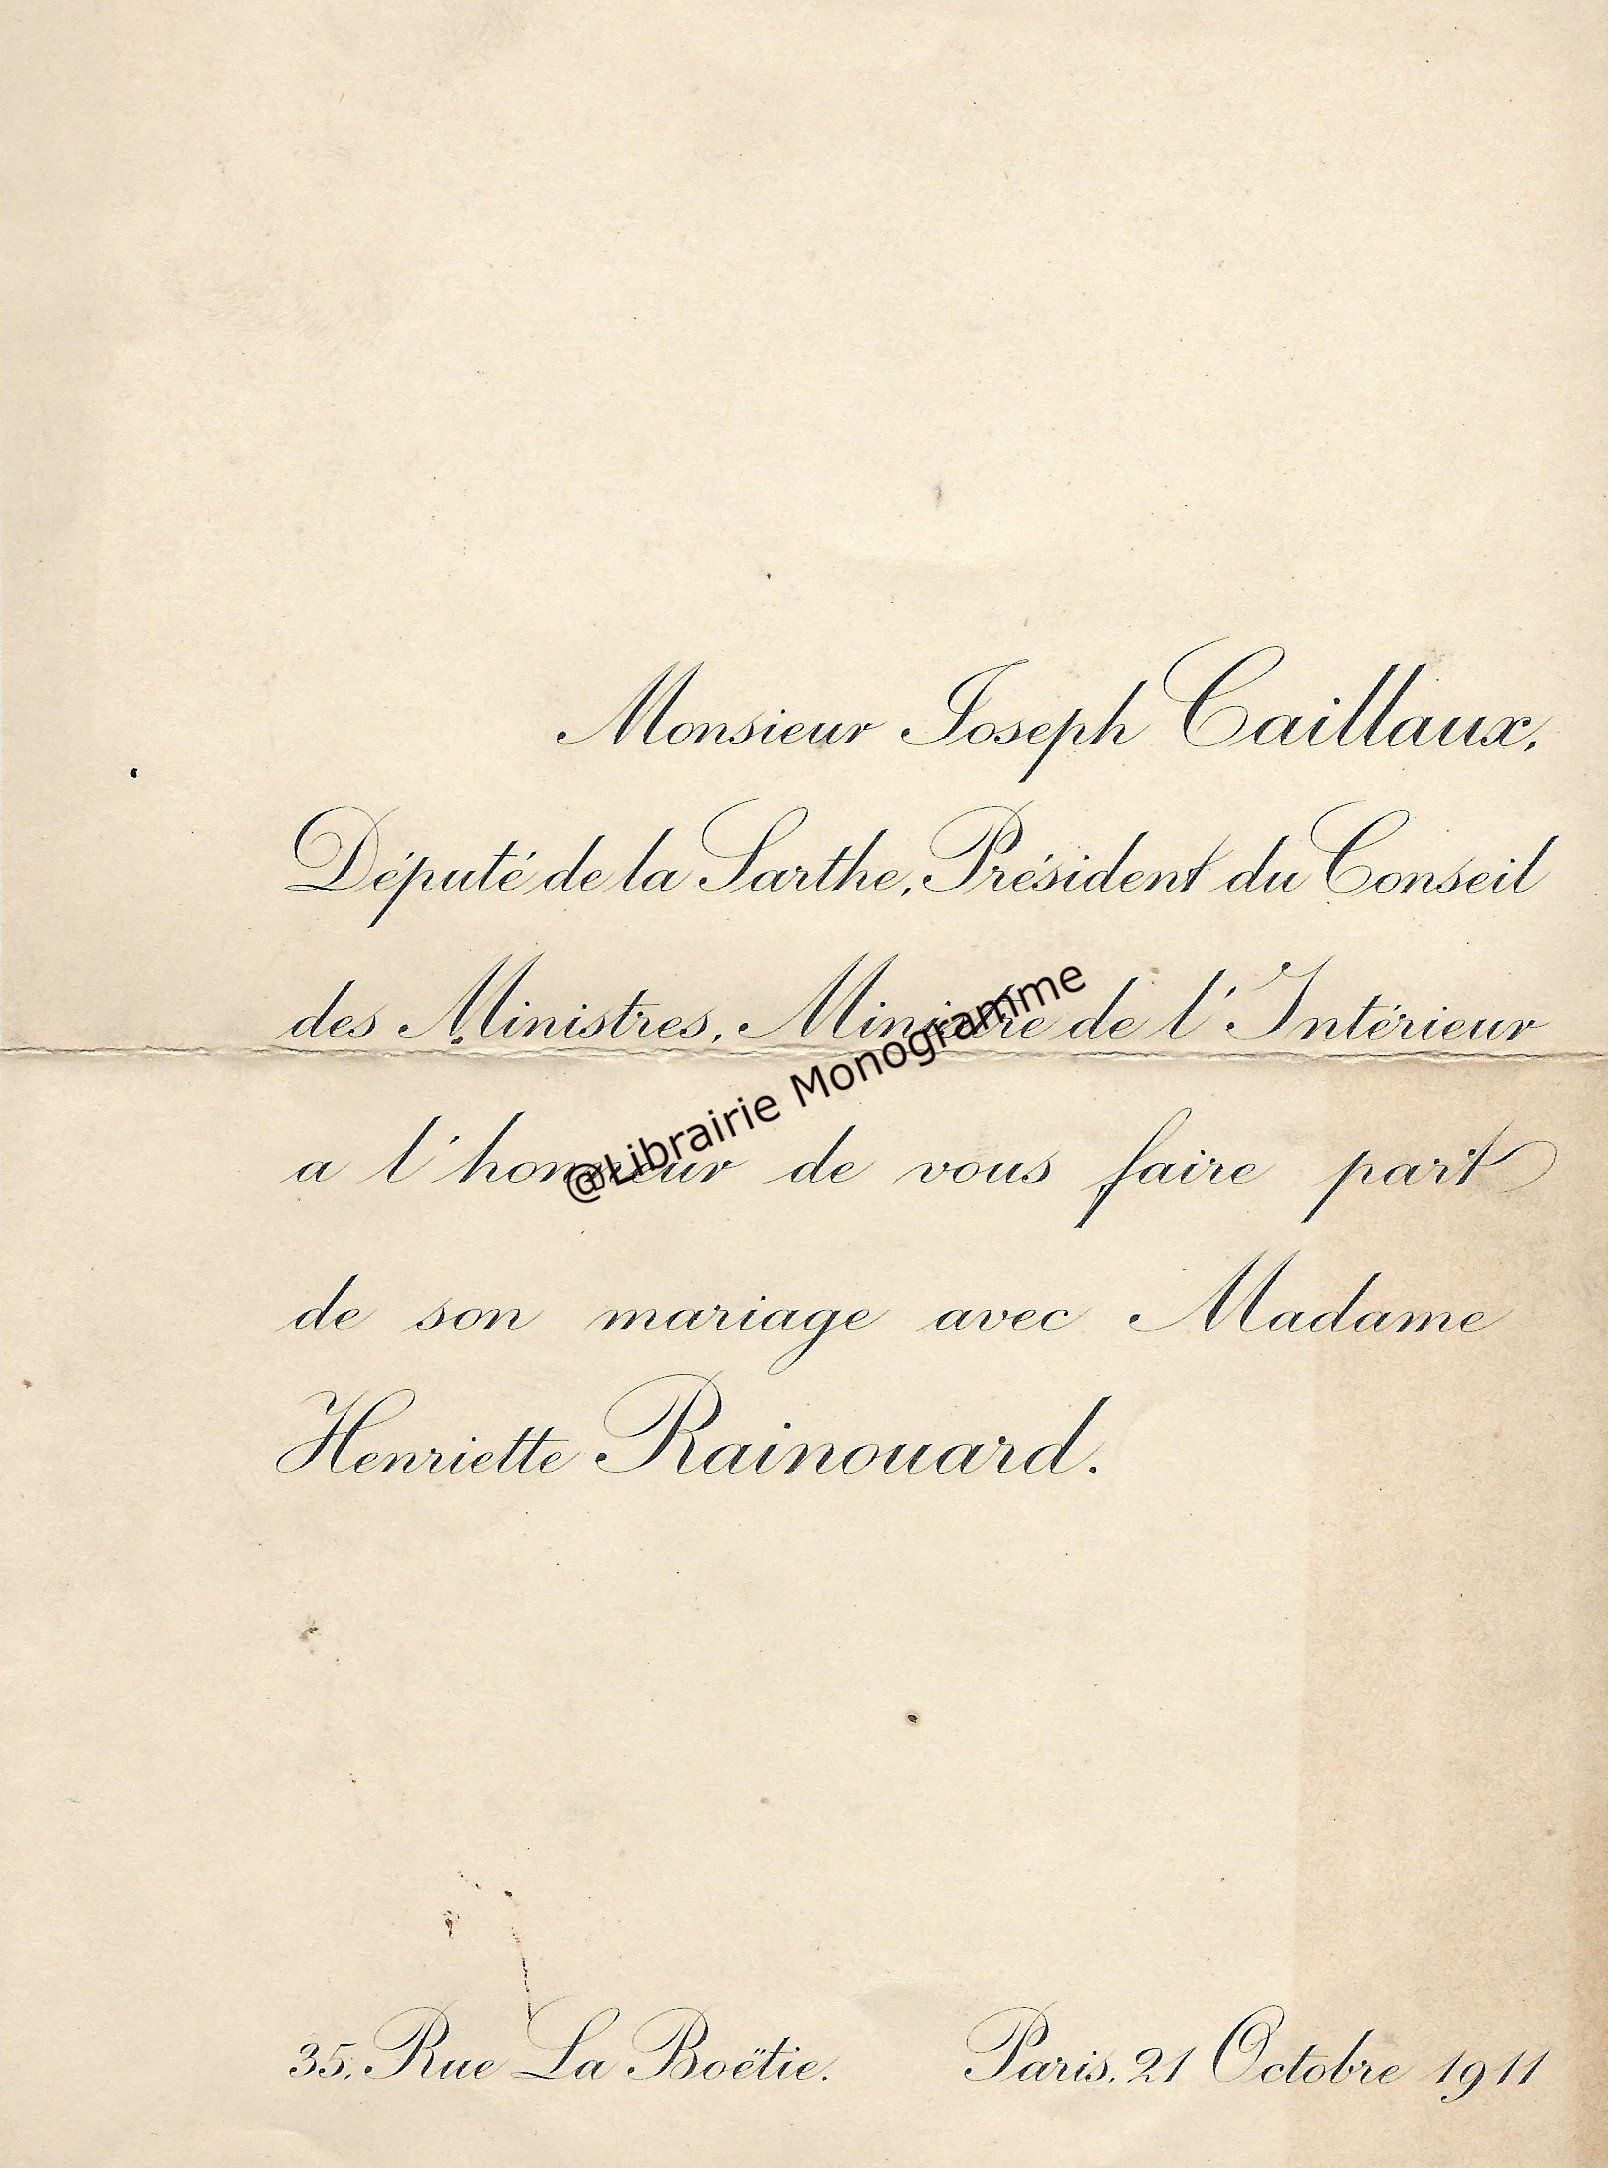 Monsieur Joseph Caillaux,
Député de la Sarthe, Président du Conseil
des Ministres, Ministre de l'Intérieur
a l'honneur de vous faire part
de son mariage avec Madame
Henriette Rainouard.
35, Rue La Boëtie. Paris, 21 Octobre 1911
@Librairie Monogramme